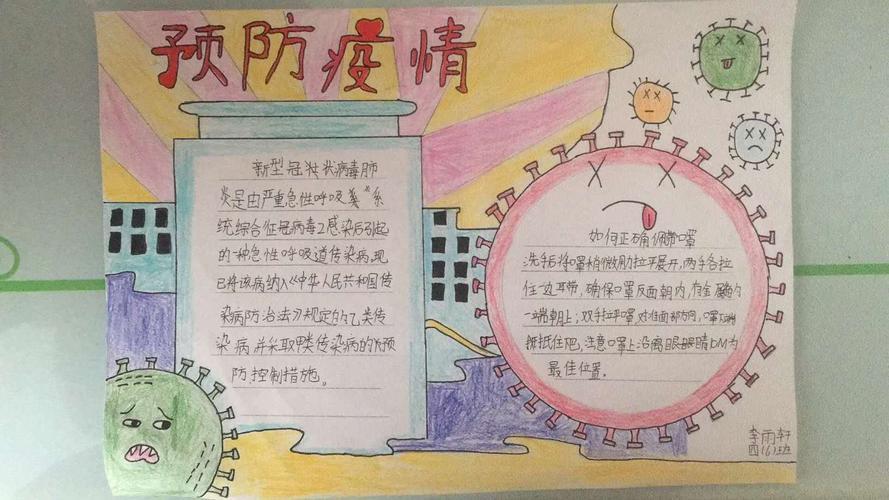 预防疫情
新型冠状病毒肺
炎是由严重急性呼吸系
统综合征冠病毒2感染后引起
的一种急性呼吸道传染病,现
已将该病纳入《中华人民共和国传
染病防治法》规定的乙类传
染病,并采取甲类传染病的预
防,控制措施。
如何正确佩带口罩
洗手后将口罩稍微用力拉平展开,两手各拉
住一边耳带,确保口罩反面朝内,有金属的
一端朝上;双手拉平口罩对准面部方向,口罩下端
抵住下巴,注意口罩上沿离眼睛DM为
最佳位置。
李雨轩
四(6)班